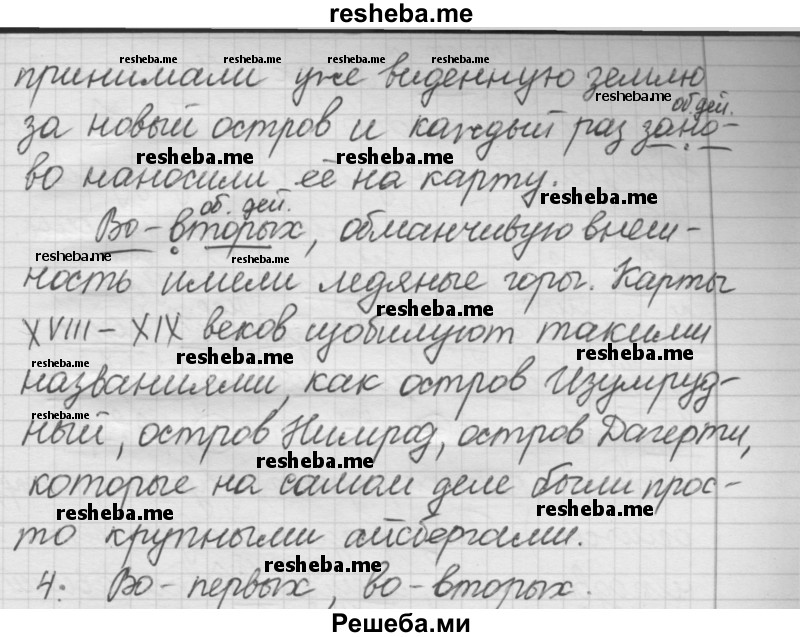 resheba.me
resheba.me resheba.me resheba.me resheba.me
принимали уже виденную землю
resheba.me об. дей.
за новый остров и каждый раз зано-
resheba.me resheba.me
во наносили её на карту.
resheba.me
об. дей.
Во-вторых, обманчивую внеш-
resheba.me resheba.me
ность имели ледяные горы. Карты
resheba.me
XVIII – XIX веков изобилуют такими
resheba.me resheba.me resheba.me
названиями, как остров Изумруд-
resheba.me
ный, остров Нимрод, остров Дагерти,
resheba.me
которые на самом деле были прос-
resheba.me resheba.me
то крупными айсбергами.
resheba.me
4. Во-первых, во-вторых.
Решеба.ми